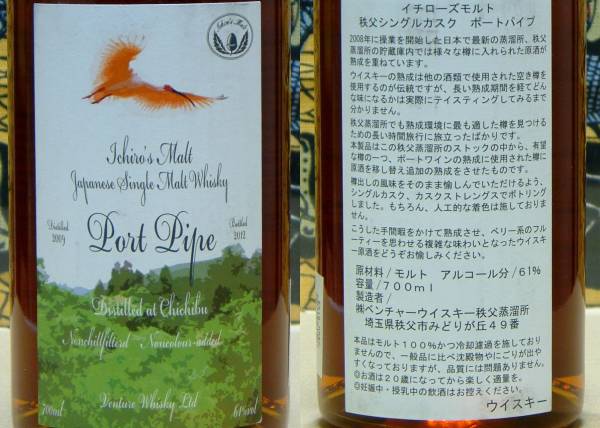 Ichiro's Malt
Ichiro's Malt
Japanese Single Malt Whisky
Distilled
2009
Bottled
2012
Port Pipe
Distilled at Chichibu
Nonchillfilterd ~ Noncolour-added
Venture Whisky Ltd
700ml
61%vol
イチローズモルト
秩父シングルカスク ポートパイプ
2008年に操業を開始した日本で最新の蒸溜所、秩父
蒸溜所の貯蔵庫内では様々な樽に入れられた原酒が
熟成を重ねています。
ウイスキーの熟成は他の酒類で使用された空き樽を
使用するのが伝統ですが、長い熟成期間を経てどん
な味になるかは実際にテイスティングしてみるまで
分かりません。
秩父蒸溜所でも熟成環境に最も適した樽を見つける
ための長い時間旅行に旅立ったばかりです。
本製品はこの秩父蒸溜所のストックの中から、有望
な樽の一つ、ポートワインの熟成に使用された樽に
原酒を移し替え追加の熟成をさせたものです。
樽出しの風味をそのまま愉しんでいただけるよう、
シングルカスク、カスクストレングスでボトリング
しました。もちろん、人工的な着色は施しておりませ
ん。
こうした手間暇をかけて熟成させ、ベリー系のフル
ーティーを思わせる複雑な味わいとなったウイスキ
ー原酒をどうぞお愉しみください。
原材料／モルト アルコール分／61%
容量／700ml
製造者／
㈱ベンチャーウイスキー秩父蒸溜所
埼玉県秩父市みどりが丘49番
本品はモルト100%かつ冷却濾過を施しており
ませんので、一般品に比べ沈殿物やにごりが出や
すくなっておりますが、品質には問題ありません。
◎お酒は20歳になってから楽しく適量を。
◎妊娠中・授乳中の飲酒はお控えください。
ウイスキー